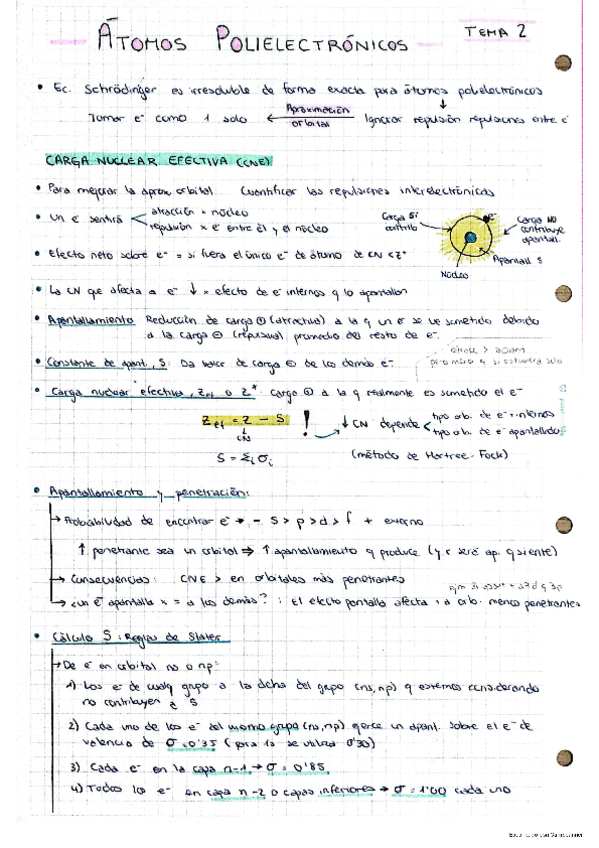 ÁTOMOS POLIELECTRÓNICOS
TEMA 2
• Ec. Schrödinger es irresoluble de forma exacta para átomos polielectrónicos
Tomar e⁻ como 1 solo ← Aproximación orbital Ignorar repulsión repulsiones entre e⁻
CARGA NUCLEAR EFECTIVA (CNE)
• Para mejorar la aprox orbital Cuantificar las repulsiones interelectrónicas
• Un e⁻ sentirá < atracción = núcleo
repulsión x e⁻ entre él y el núcleo
Carga SÍ contrib
e⁻
Carga NO contribuye apantall.
Apantall S
Núcleo
• Efecto neto sobre e⁻ = si fuera el único e⁻ de átomo de CN < Z
• La CN que afecta a e⁻ ↓ x efecto de e⁻ internos q lo apantallan
• Apantallamiento Reducción de carga ⊕ (atractiva) a la q un e⁻ se ve sometido debido
a la carga ⊖ (repulsiva) promedio del resto de e⁻.
• Constante de apant., S: Da valor de carga ⊖ de los demás e⁻
• Carga nuclear efectiva, Zef o Z* carga ⊕ a la q realmente es sometido el e⁻
Zef = Z - S
CN
! ↓ CN depende < tipo orb. de e⁻ internos
tipo orb. de e⁻ apantallado
S = Σi σi
(método de Hartree-Fock)
• Apantallamiento y penetración:
→ Probabilidad de encontrar e⁻ → - s > p > d > f + externo
↑ penetrante sea un orbital ⇒ ↑ apantallamiento q produce (y < será ap. q siente)
→ Consecuencias: CNE > en orbitales más penetrantes
→ ¿un e⁻ apantalla x = a los demás?: El efecto pantalla afecta + a orb. menos penetrantes
• Cálculo S: Reglas de Slater
→ De e⁻ en orbital ns o np:
1) Los e⁻ de cualq grupo a la dcha del grupo (ns, np) q estemos considerando
no contribuyen a S
2) Cada uno de los e⁻ del mismo grupo (ns, np) ejerce un apant. sobre el e⁻ de
valencia de σ = 0'35 (para 1s se utiliza 0'30)
3) Cada e⁻ en la capa n-1 → σ = 0'85
4) Todos los e⁻ en capa n-2 o capas inferiores → σ = 1'00 cada uno